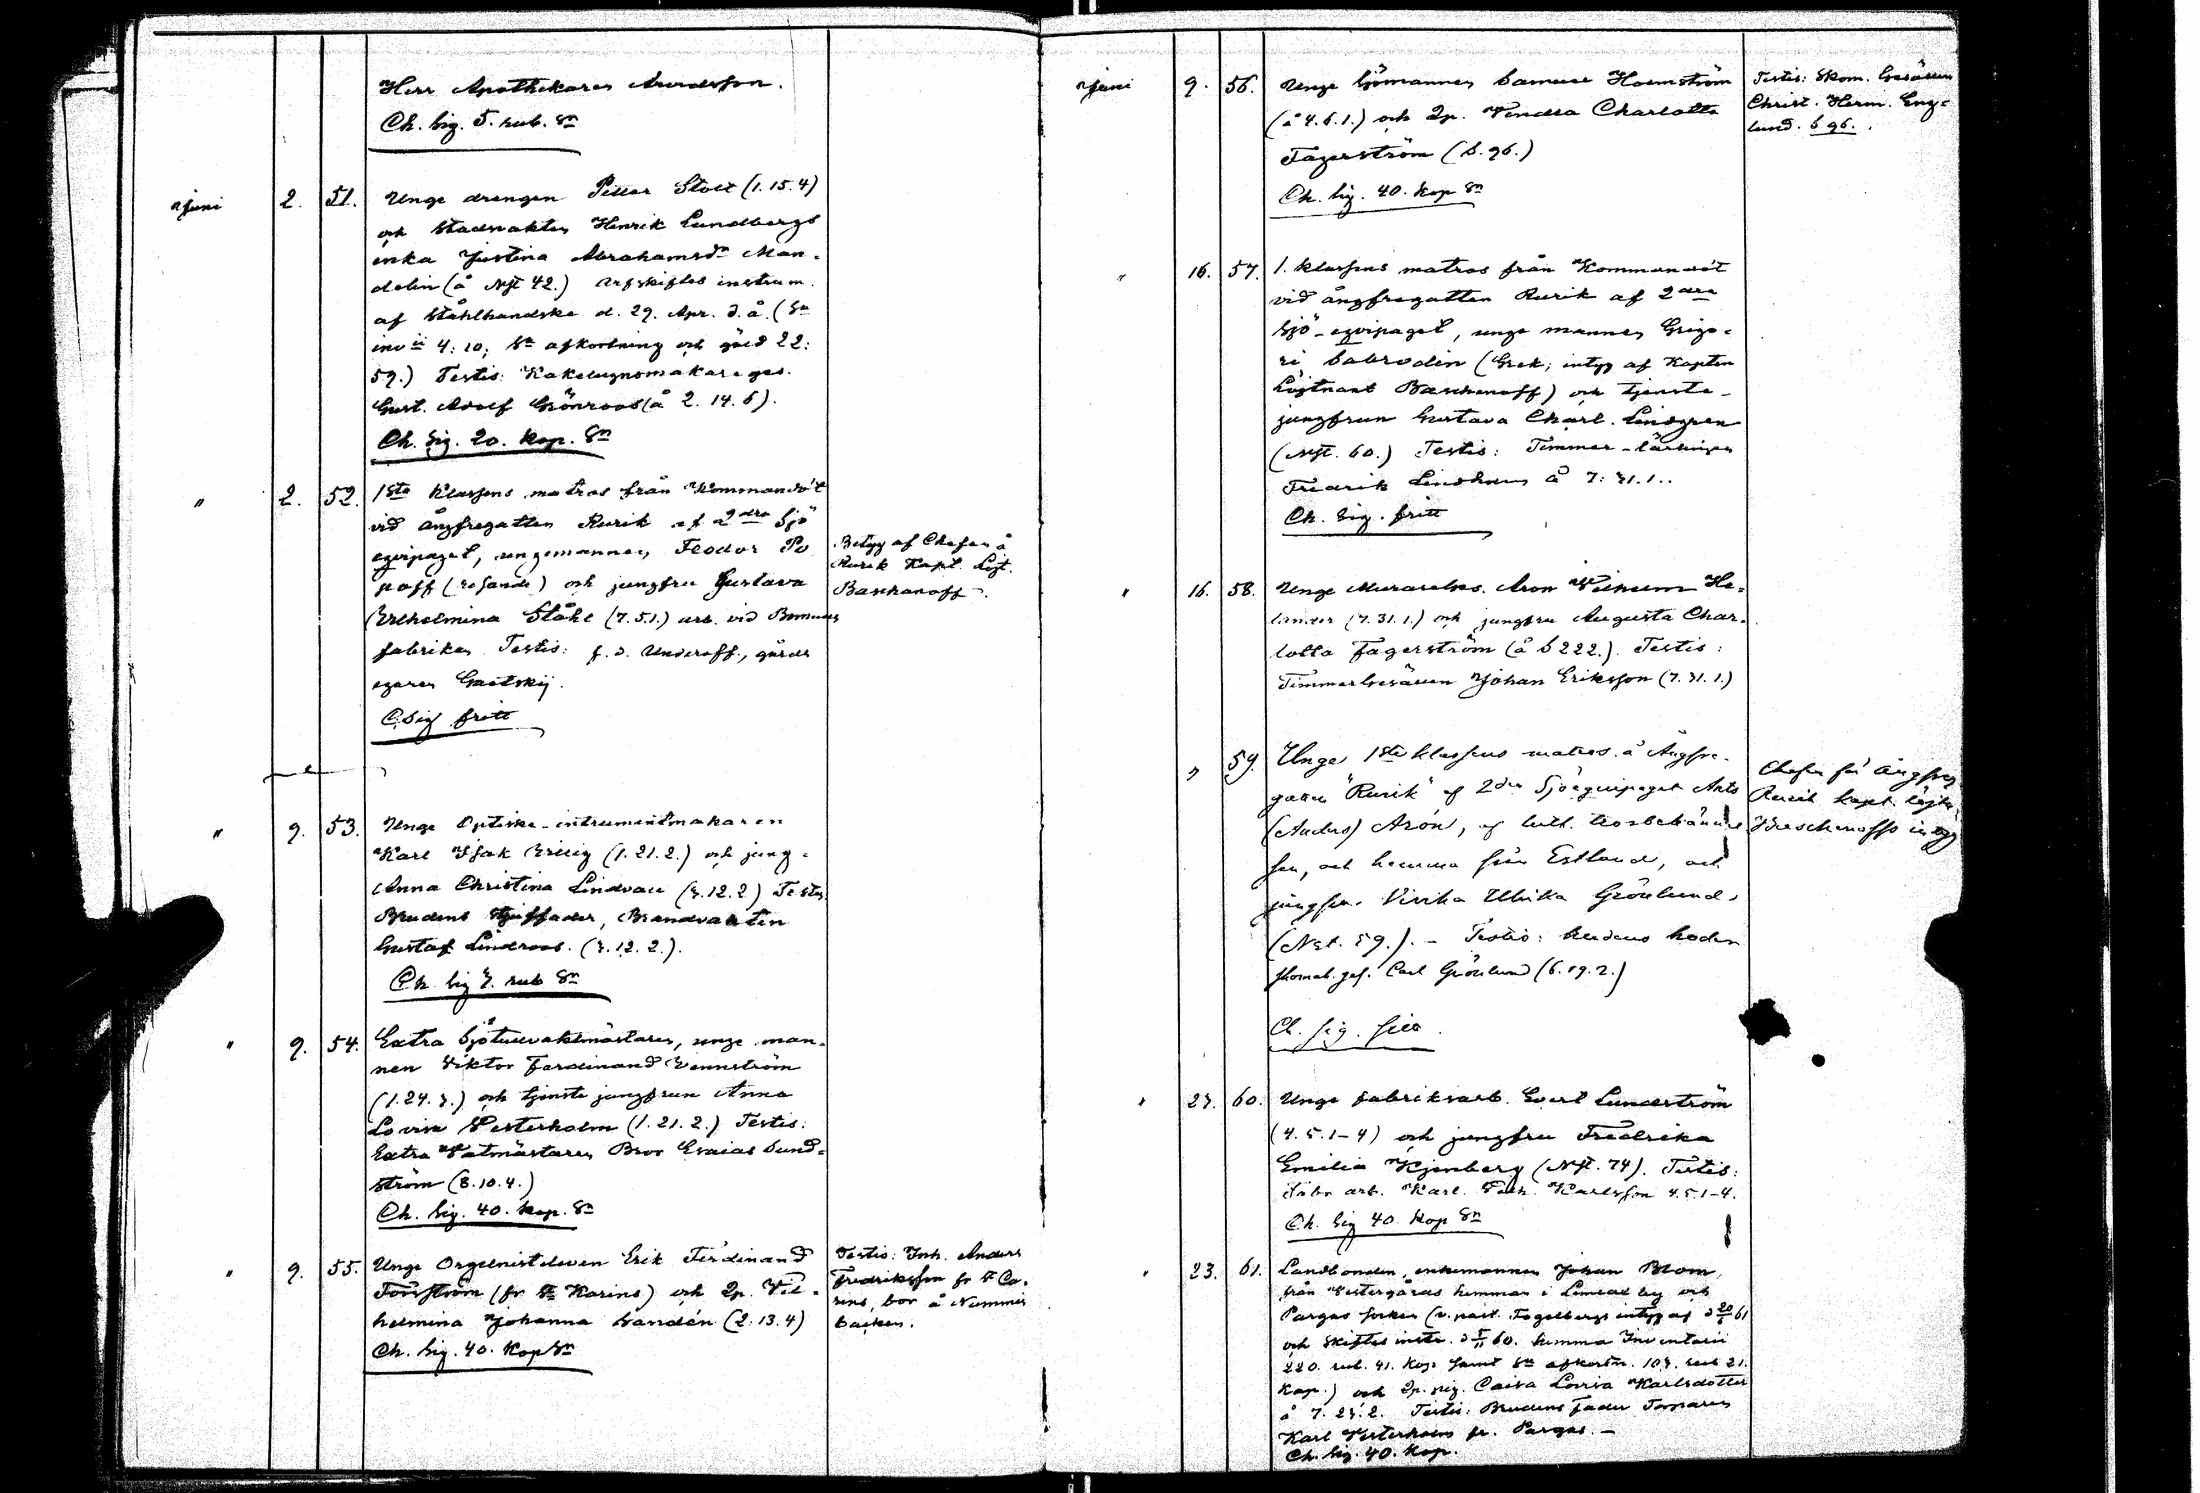 Herr Apothekaren
Ch. Sig. 5. rub. Sr
Juni 2. 51. Unge drengen Petter Stolt (1.15.4)
och Stadsvakten Henrik Lundbergs
enka Justina Abrahamsdr Man-
delin (å Nyst 42.) Arfskiftes instrum.
af Stålhandske d. 29. Apr. d. å. (Sn
4: 10; Sn afkortning och gäld 22:
59.) Testis: Kakelugnsmakareges.
Gust. Adolf Grönroos (å 2. 14. 6).
Ch. Sig. 20. Kop. Sr
" 2. 52. 1sta Klassens matros från Kommandot
vid ångfregatten Rurik af 2dra Sjö
eqvipaget, ungemannen Feodor Po
poff (resande) och jungfru Gustava
Wilhelmina Ståhl (7.5.1.) arb. vid Bomulls
fabriken Testis: f. d. Underoff., gårds
egaren
C. Sig fritt
Betyg af Chefen å
Rurik Kapt. Löjt.
Baschanoff.
" 9. 53. Unge Optiske-intrumentmakaren
Karl Isak Willig (1.21.2.) och jung-
Anna Christina Lindvall (3.12.2) Testis
Brudens Styffader, Brandvakten
Gustaf Lindroos. (3.12.2.).
Ch. Sig 3. rub Sr
" 9. 54. Extra Sjötullvaktmästaren, unge man-
nen Viktor Ferdinand Wennström
(1.24.3.) och tjenste jungfrun Anna
Lovisa Westerholm (1.21.2.) Testis:
Extra Vaktmästaren Bror Esaias Sund-
ström (8.10.4.)
Ch. Sig. 40. Kop. Sr
" 9. 55. Unge Orgelnisteleven Erik Ferdinand
Forsström (fr St Karins) och Jp. Vil-
helmina Johanna Sandén (2.13.4)
Ch. Sig. 40. Kop Sr
Testis: Inh. Anders
Fredriksson fr St Ca-
rins, bor å Nummis
backen.
Juni 9. 56. Unge Sjömannen Samuel Holmström
(å 4.6.1.) och Jp. Vendla Charlotta
Fagerström (S. 96.)
Ch. Sig. 40. Kop Sr
Testis: Skom. Gesällen
Christ. Herm. Eng-
lund. S 96.
" 16. 57. 1. klassens matros från Kommandot
vid ångfregatten Rurik af 2dra
Sjö-eqvipaget, unge mannen Grigo-
ri Sabrodin (Grek; intyg af Kapten
Löjtnant Baschanoff) och tjenste-
jungfrun Gustava Charl. Lindgren
(Nyst. 60.) Testis: Timmer-lärlingen
Fredrik Lindholm å 7. 31. 1..
Ch. Sig. fritt
" 16. 58. Unge Murarelns. Aron Wilhelm He-
lander (7.31.1.) och jungfru Augusta Char-
lotta Fagerström (å S 222.). Testis:
Timmergesällen Johan Eriksson (7.31.1.)
" 59. Unge 1sta klassens matros å Ångfre-
gatten "Rurik" af 2dra Sjöequipaget Ants
(Anders) Arón, af luth. trosbekännel
sen, och hemma från Estland, och
jungfru Ulrika Grönlund.
(Nyst. 59.). - Testis: brudens broder
skomak. ges. Carl Grönlund (6.19.2.)
Ch. sig. fritt.
Chefen för Ångfreg
Rurik kapt. löjtn.
Baschenoffs intyg
" 23. 60. Unge fabriksarb. Evert Lundström
(4.5.1-4) och jungfru Fredrika
Emilia Kjenberg (Nyst. 74). Testis:
Fabr arb. Karl Karlsson 4.5.1-4.
Ch. Sig 40. Kop Sr
" 23. 61. Landbonden, enkemannen Johan Blom,
från Westergårds hemman i by och
Pargas socken (v. past. Fogelbergs intyg af d 20/5 61
och Skiftes instr. d 60. Summa Inventarii
220. rub. 41. Kop. samt Sn afkortn. 103. rub 21.
Kop.) och Jp. pig. Caisa Lovisa Karlsdotter
å 7. 23. 2. Testis: Brudens fader Torparen
Karl Westerholm fr. Pargas. -
Ch. Sig. 40. Kop.